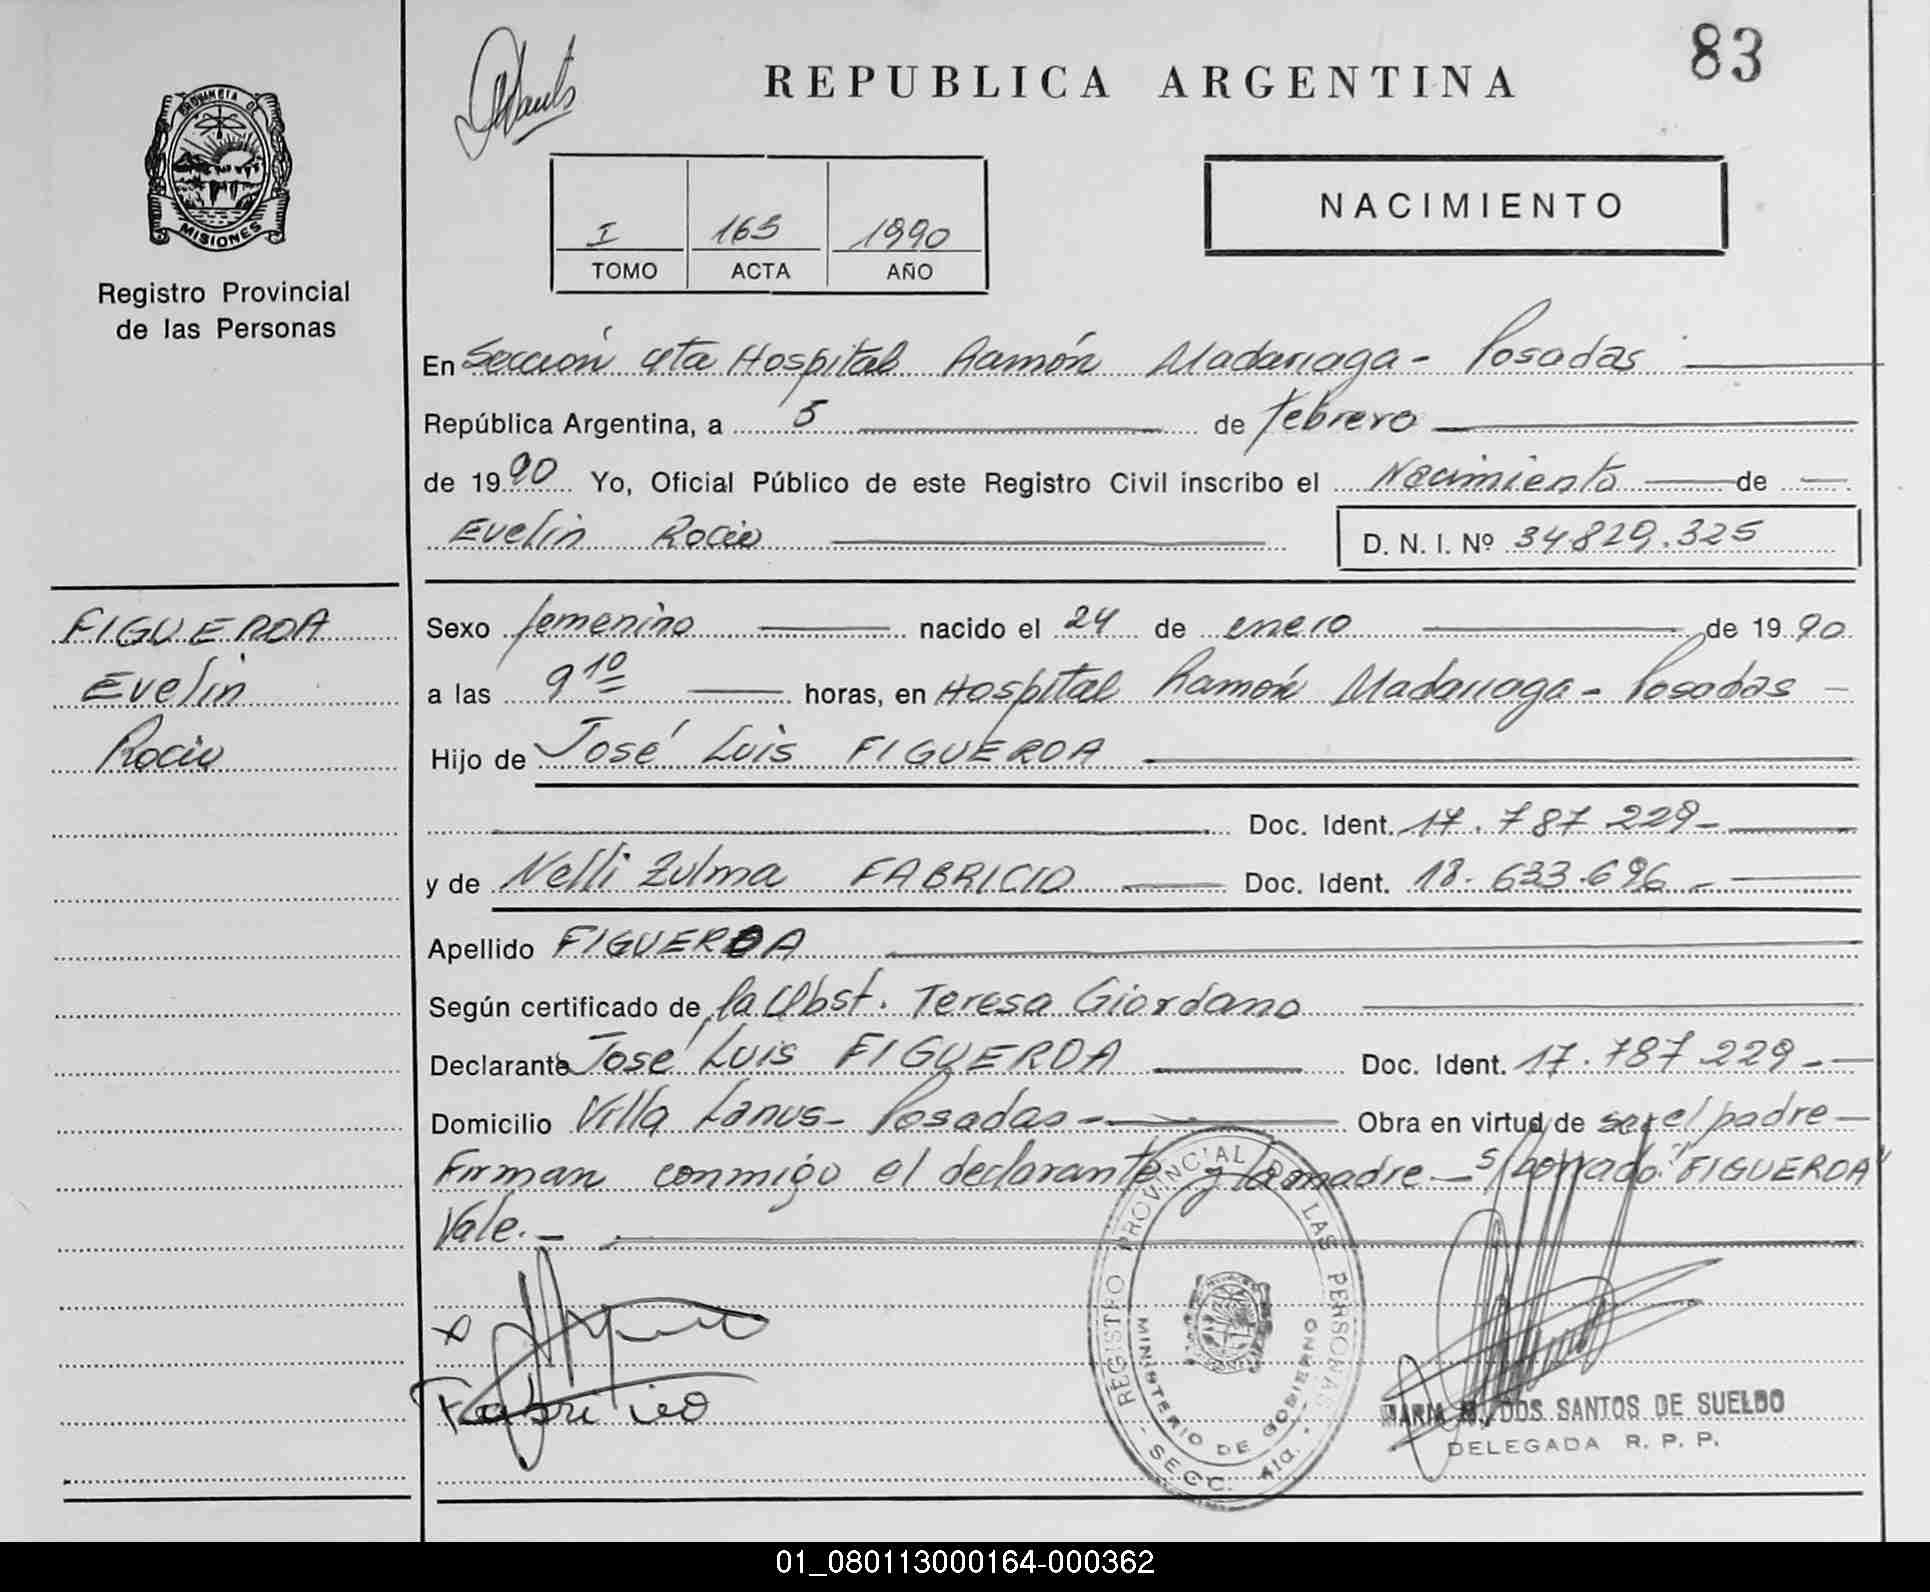 83
REPUBLICA ARGENTINA
PROVINCIA DE
MISIONES
Registro Provincial
de las Personas
I 165 1990
TOMO ACTA AÑO
NACIMIENTO
En Sección 4ta Hospital Ramón Madariaga - Posadas
República Argentina, a 5 de febrero
de 1990 Yo, Oficial Público de este Registro Civil inscribo el Nacimiento de
Evelin Rocio D. N. I. Nº 34.829.325
FIGUEROA
Evelin
Rocio
Sexo femenino nacido el 24 de enero de 1990
a las 9 10 horas, en Hospital Ramón Madariaga - Posadas
Hijo de José Luis FIGUEROA
Doc. Ident. 17.787.229-
y de Nelli Zulma FABRICIO Doc. Ident. 18.633.696-
Apellido FIGUEROA
Según certificado de la Obst. Teresa Giordano
Declarante José Luis FIGUEROA Doc. Ident. 17.787.229-
Domicilio Villa Lanus - Posadas - Obra en virtud de ser el padre
Firman conmigo el declarante y la madre - s/borrado: "FIGUEROA"
Vale.-
Fabricio
REGISTRO PROVINCIAL DE LAS PERSONAS
MINISTERIO DE GOBIERNO
- SECC. 4ta. -
MARIA M. DOS SANTOS DE SUELDO
DELEGADA R. P. P.
01_080113000164-000362